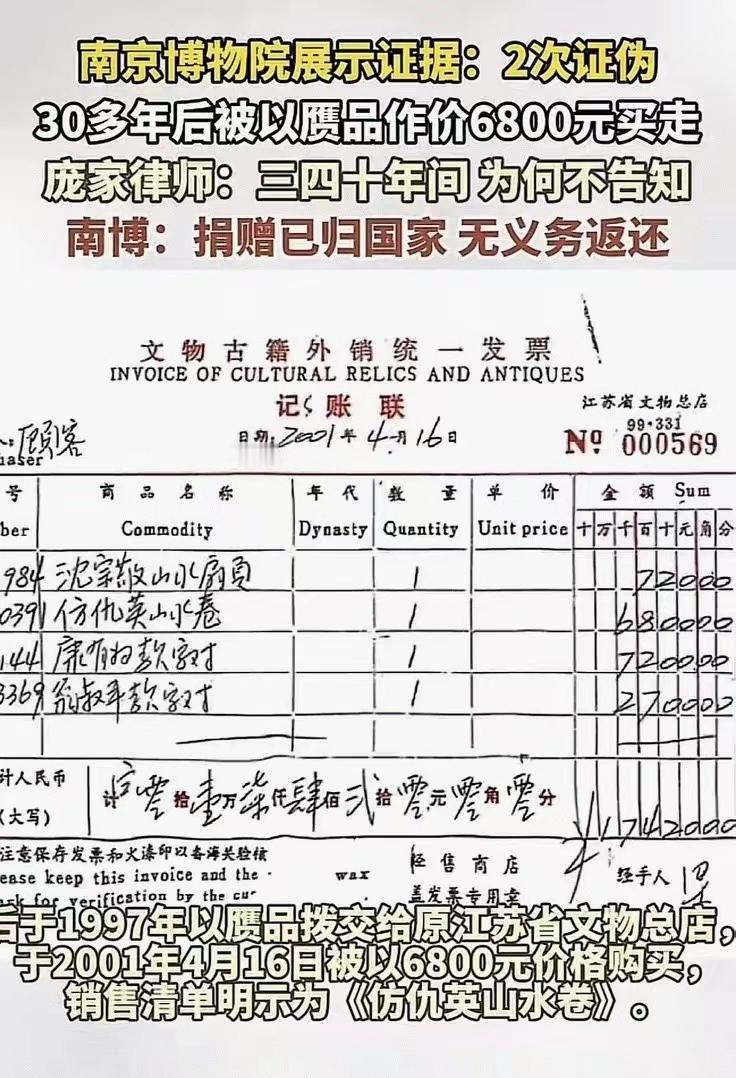 南京博物院展示证据：2次证伪
30多年后被以赝品作价6800元买走
庞家律师：三四十年间 为何不告知
南博：捐赠已归国家 无义务返还
文物古籍外销统一发票
INVOICE OF CULTURAL RELICS AND ANTIQUES
记账联
江苏省文物总店
99·331
顾客
日期：2001年4月16日
№ 000569
haser
号 商品名称 年代 数量 单价 金额 Sum
ber Commodity Dynasty Quantity Unit price 十万千百十元角分
984 沈宗敬山水扇页 1 72000
0391 仿仇英山水卷 1 680000
144 康有为款字对 1 720000
3369 翁叔平款字对 1 270000
计人民币
（大写）
计 零拾壹万柒仟肆佰贰拾零元零角零分
¥1742000
注意保存发票和火漆印以备海关验核
ease keep this invoice and the wax
rk for verification by the cus
经售商店
盖发票专用章
经手人
后于1997年以赝品拨交给原江苏省文物总店，
于2001年4月16日被以6800元价格购买，
销售清单明示为《仿仇英山水卷》。